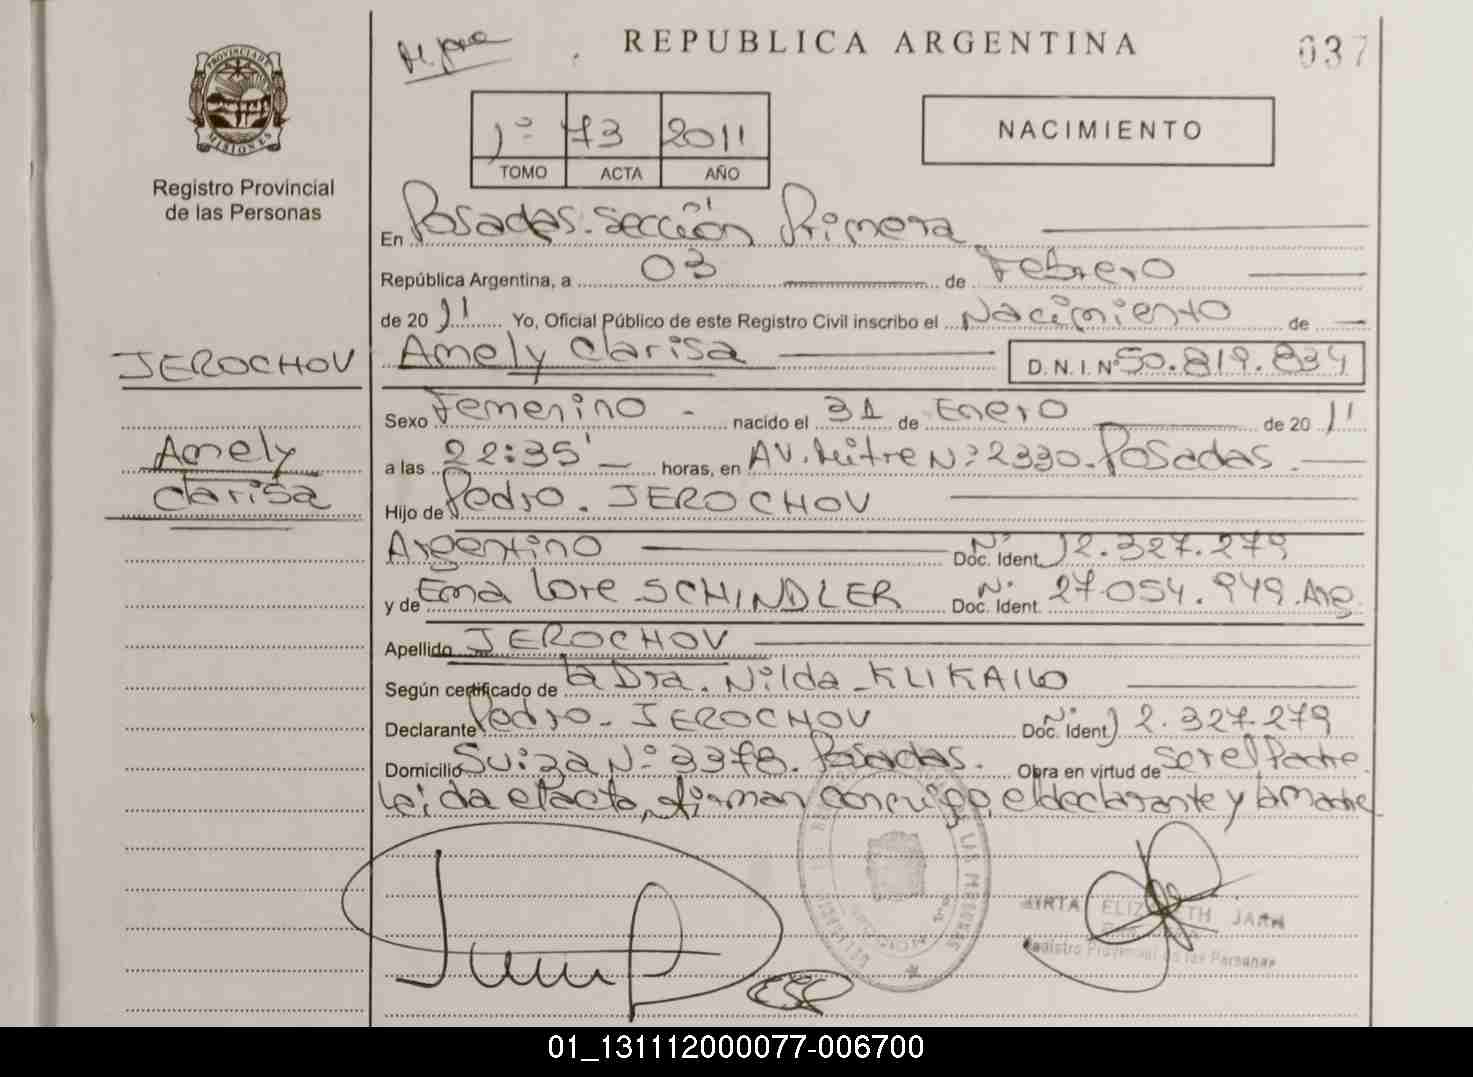 PROVINCIA DE
MISIONES
Registro Provincial
de las Personas
REPUBLICA ARGENTINA
037
1º 73 2011
TOMO ACTA AÑO
NACIMIENTO
En Posadas. Sección Primera
República Argentina, a 03 de Febrero
de 2011 Yo, Oficial Público de este Registro Civil inscribo el Nacimiento de
JEROCHOV
Amely Clarisa D. N. I. Nº 50.819.834
Sexo Femenino - nacido el 31 de Enero de 2011
Amely
a las 22:35' horas, en AV. Mitre Nº 2330. Posadas.
Clarisa
Hijo de Pedro. JEROCHOV
Argentino Nº Doc. Ident. 12.327.279
y de Ema Lore SCHINDLER Nº Doc. Ident. 27.054.949. Arg.
Apellido JEROCHOV
Según certificado de la Dra. Nilda KLIKAILO
Declarante Pedro - JEROCHOV Nº Doc. Ident. 12.327.279
Domicilio Suiza Nº 3378. Posadas. Obra en virtud de ser el Padre.
Leida el acta, firman conmigo, el declarante y la madre
MIRTA ELIZABETH JARA
Registro Provincial de las Personas
01_131112000077-006700